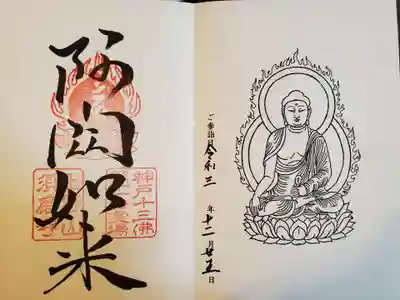 阿閦如来
神戸十三佛
霊場
須磨寺
ご参詣日 令和三年十二月廿五日